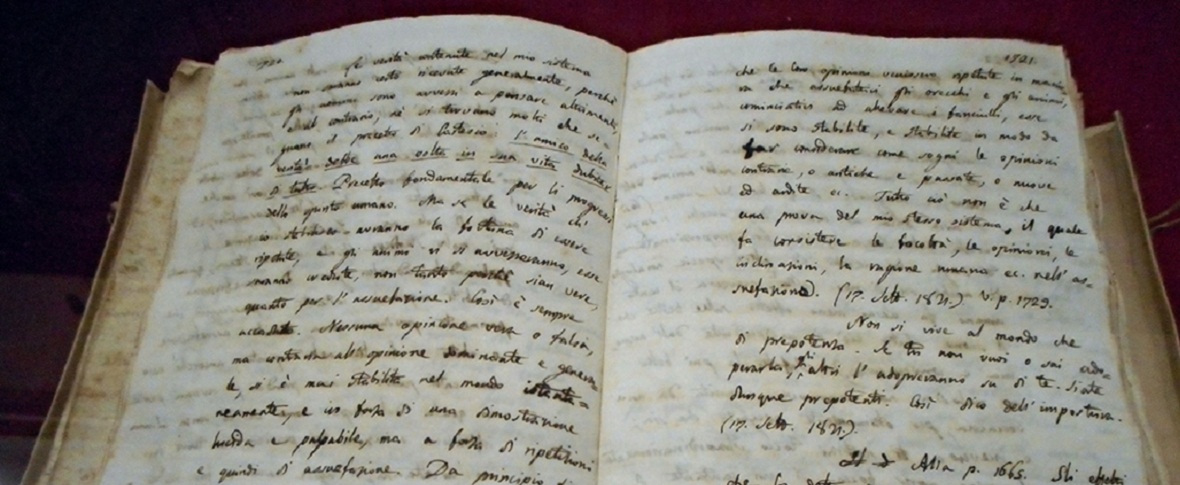 1720
Le verità contenute nel mio sistema
non saranno certo ricevute generalmente, perchè
gli uomini sono avvezzi a pensare altrimenti,
e al contrario, nè si trovano molti che se-
guano il precetto di Cartesio: l'amico della
verità debbe una volta in sua vita dubitar
di tutto. Precetto fondamentale per li progressi
dello spirito umano. Ma se le verità ch'
io stabilisco avranno la fortuna di essere
ripetute, e gli animi vi si avvezzeranno, esse
saranno credute, non tanto perchè sian vere,
quanto per l'assuefazione. Così è sempre
accaduto. Nessuna opinione vera o falsa,
ma contraria all'opinione dominante e genera-
le, si è mai stabilita nel mondo istanta-
neamente, e in forza di una dimostrazione
lucida e palpabile, ma a forza di ripetizioni
e quindi di assuefazione. Da principio
1721.
che le loro opinioni venissero ripetute in maniera
che assuefattivi gli orecchi e gli animi,
cominciativi ad allevare i fanciulli, esse
si sono stabilite, e stabilite in modo da
far considerare come sogni le opinioni
contrarie, o antiche e passate, o nuove
ed ardite ec. Tutto ciò non è che
una prova del mio stesso sistema, il quale
fa consistere le facoltà, le opinioni, le
inclinazioni, la ragione umana ec. nell'as-
suefazione). (17. Sett. 1821.) v. p. 1729.
Non si vive al mondo che
di prepotenza. Se tu non vuoi o sai ado-
perarla, gli altri l'adopreranno su di te. Siate
dunque prepotenti. Così dico dell'impostura.
(17. Sett. 1821).
Alla p. 1665. Gli effetti